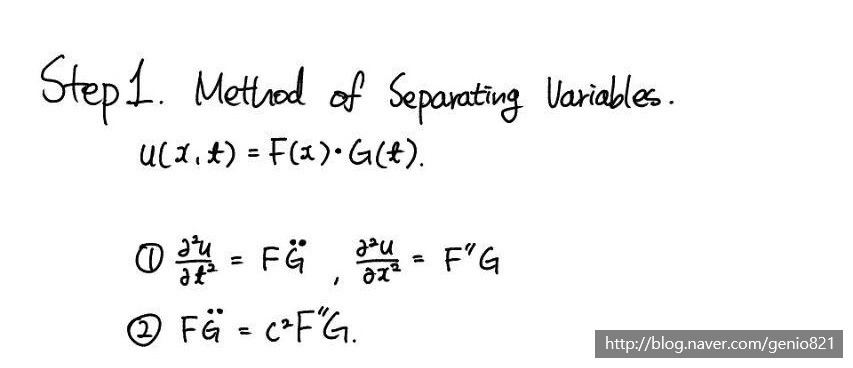 Step 1. Method of Separating Variables.
u(x,t) = F(x)·G(t).
① ∂²u/∂t² = FG̈ , ∂²u/∂x² = F″G
② FG̈ = c²F″G.
http://blog.naver.com/genio821